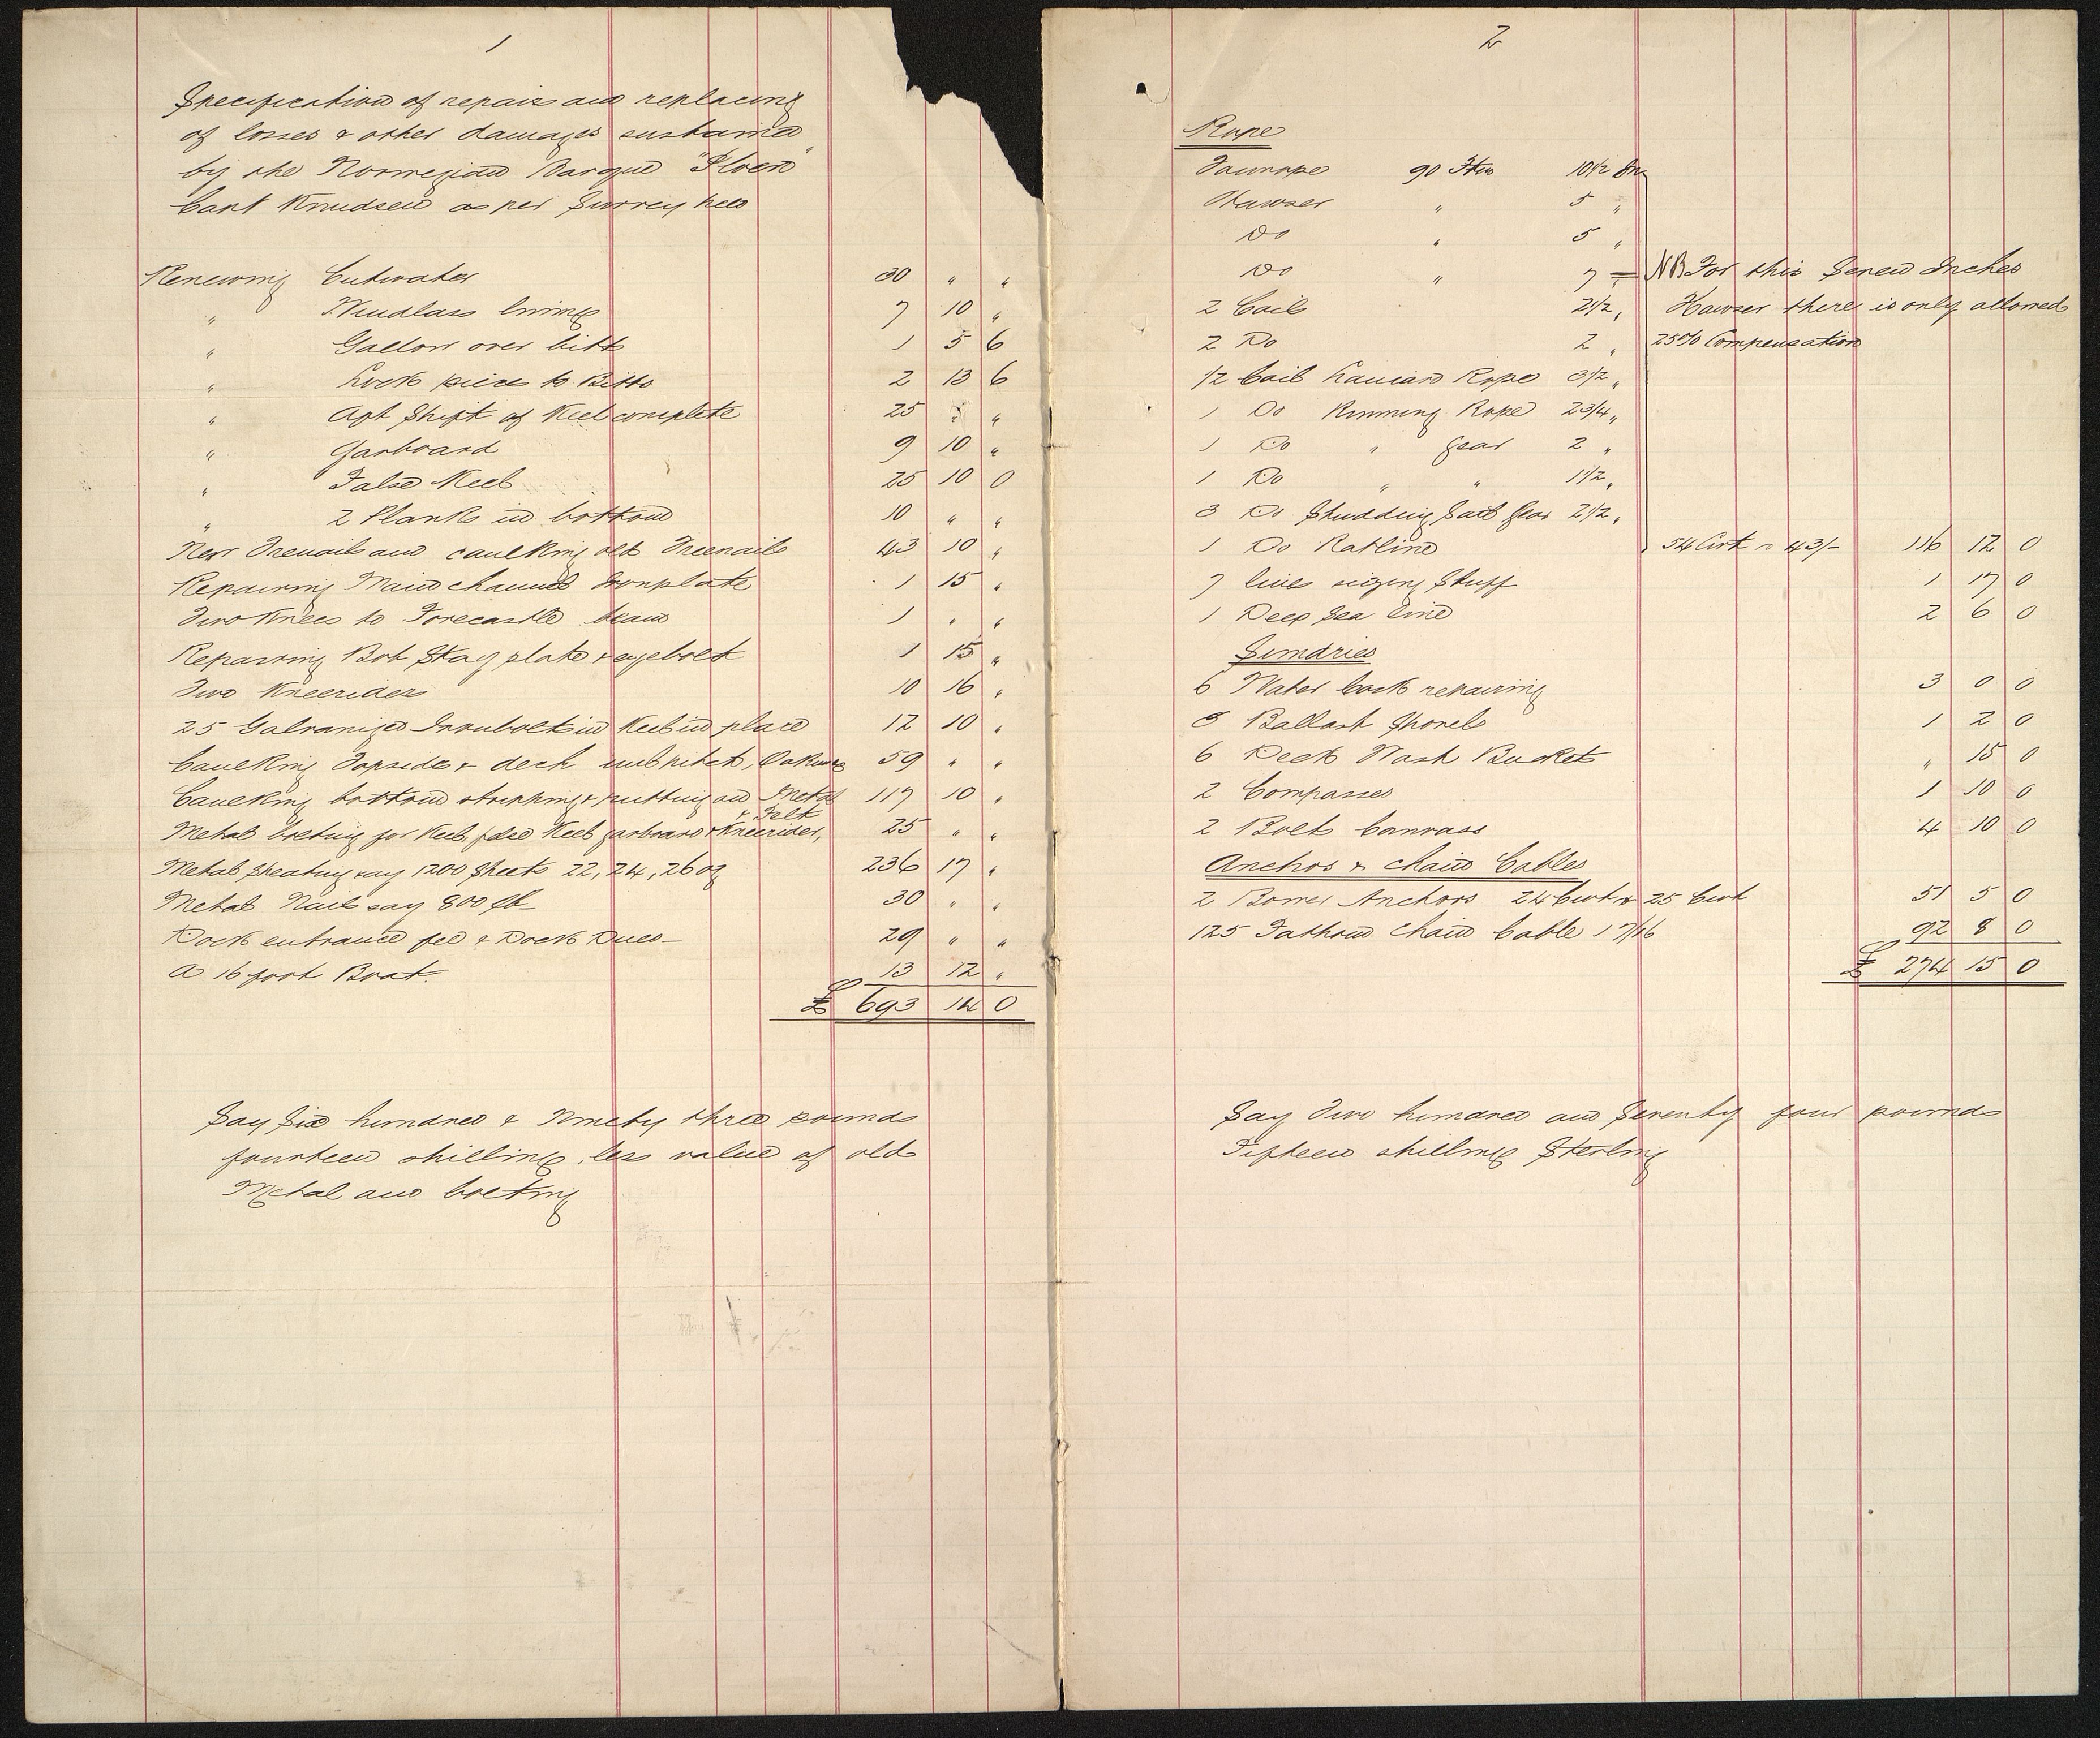 1
Specification of repairs and replacing
of losses & other damages sustained
by the Norwegian Barque
Capt Knudsen as per Survey held
Renewing Cutwater 30 " "
" Windlass linings 7 10 "
" Gallow over bitts 1 5 6
" piece to Bitts 2 13 6
" Aft Shift of Keel complete 25 " "
" Garboard 9 10 "
" False Keel 25 10 0
" 2 Planks in bottom 10 " "
New Treenails and caulking old Treenails 43 10 "
Repairing Main channel Ironplate 1 15 "
Two Knees to Forecastle beam 1 " "
Repairing Bob Stay plate & eyebolt 1 15 "
Two Kneeriders 10 16 "
25 Galvanized Ironbolts in Keel in place 12 10 "
Caulking Topside & deck pitch, Oakum 59 " "
Caulking bottom stripping & putting on Metal 117 10 "
& Felt
Metal bolting for Keel false Keel garboard & Kneerider, 25 " "
Metal Sheating say 1200 Sheets 22, 24, 26 oz 236 17 "
Metal Nails say 800 lb 30 " "
Dock entrance fee & Dock Dues 29 " "
A 16 foot Boat. 13 12 "
£ 693 14 0
Say Six hundred & Ninety three pounds
fourteen shillings, less value of old
Metal and bolting
2
Rope
Towrope 90 Ftm 10 1/2 In
Hawser " 5 "
Do " 5 "
Do " 7 " = NB For this Seven Inches
2 Coils 2 1/2 " Hawser there is only allowed
2 Do 2 " 25% Compensation
1/2 Coil Laniard Rope 3 1/2 "
1 Do Running Rope 2 3/4 "
1 Do " gear 2 "
1 Do " " 1 1/2 "
3 Do Studding Sail Gear 2 1/2 "
1 Do Ratline 54 Cwt a 43/- 116 12 0
7 lines seizing Stuff 1 17 0
1 Deep Sea Line 2 6 0
Sundries
6 Water Cask repairing 3 0 0
8 Ballast Shovels 1 2 0
6 Deck Wash Buckets " 15 0
2 Compasses 1 10 0
2 Bolts Canvass 4 10 0
Anchos & Chain Cables
2 Bower Anchors 24 Cwt & 25 Cwt 51 5 0
125 Fathom Chain Cable 1 7/16 92 8 0
£ 274 15 0
Say Two hundred and Seventy four pounds
Fifteen shillings Sterling